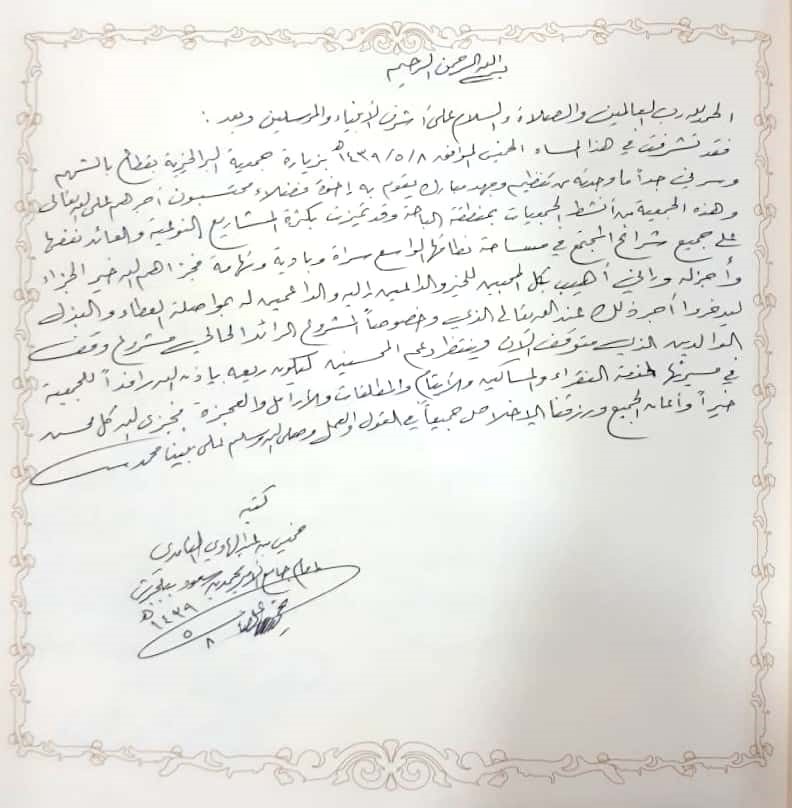 بسم الله الرحمن الرحيم
الحمد لله رب العالمين والصلاة والسلام على أشرف الأنبياء والمرسلين وبعد :
فقد تشرفت في هذا المساء الخميس الموافق ١٤٣٩/٥/٨هـ بزيارة جمعية البر الخيرية بقطاع بالشهم
وسرني جداً ما وجدته من تنظيم وجهد مبارك يقوم به إخوة فضلاء محتسبون أجرهم على الله تعالى
وهذه الجمعية من أنشط الجمعيات بمنطقة الباحة وقد تميزت بكثرة المشاريع النوعية والعائد نفعها
على جميع شرائح المجتمع في مساحة نطاقها الواسع سراة وبادية وتهامة فجزاهم الله خير الجزاء
وأجزله وإني أهيب بكل المحبين للخير والداعين إليه والداعمين له بمواصلة العطاء والبذل
ليدخروا أجر ذلك عند الله تعالى الذي وخصوصاً المشروع الرائد الحالي مشروع وقف
الوالدين الذي متوقف الآن وينتظر دعم المحسنين ليكون ريعه بإذن الله رافداً للجمعية
في مسيرتها لخدمة الفقراء والمساكين والأيتام والمطلقات والأرامل والعجزة فجزى الله كل محسن
خيراً وأعان الجميع ورزقنا الإخلاص جميعاً في القول والعمل وصلى الله وسلم على نبينا محمد
كتبه
خميس بن الغامدي
إمام جامع الأمير محمد بن سعود
١٤٣٩هـ
٥
٨